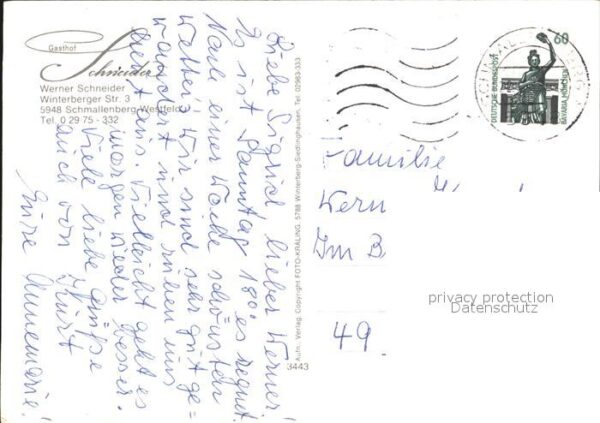 Gasthof
Schneider
Werner Schneider
Winterberger Str. 3
5948 Schmallenberg-Westfeld
Tel. 0 29 75 - 332
Liebe Sigrid, lieber Werner!
Es ist Sonntag 18° es regnet.
Nach einer Woche schönsten
Wetters. Wir sind sehr gut ge-
wandert und ruhen uns
heut aus. Vielleicht geht es
morgen wieder besser.
Viele liebe Grüße
auch von Kurt
Eure Annemarie!
Aufn. Verlag, Copyright FOTO-KRÄLING, 5788 Winterberg-Siedlinghausen, Tel. 02983-333
3443
60
DEUTSCHE BUNDESPOST
BAVARIA MÜNCHEN
Familie
Wern
Im B
49
privacy protection
Datenschutz